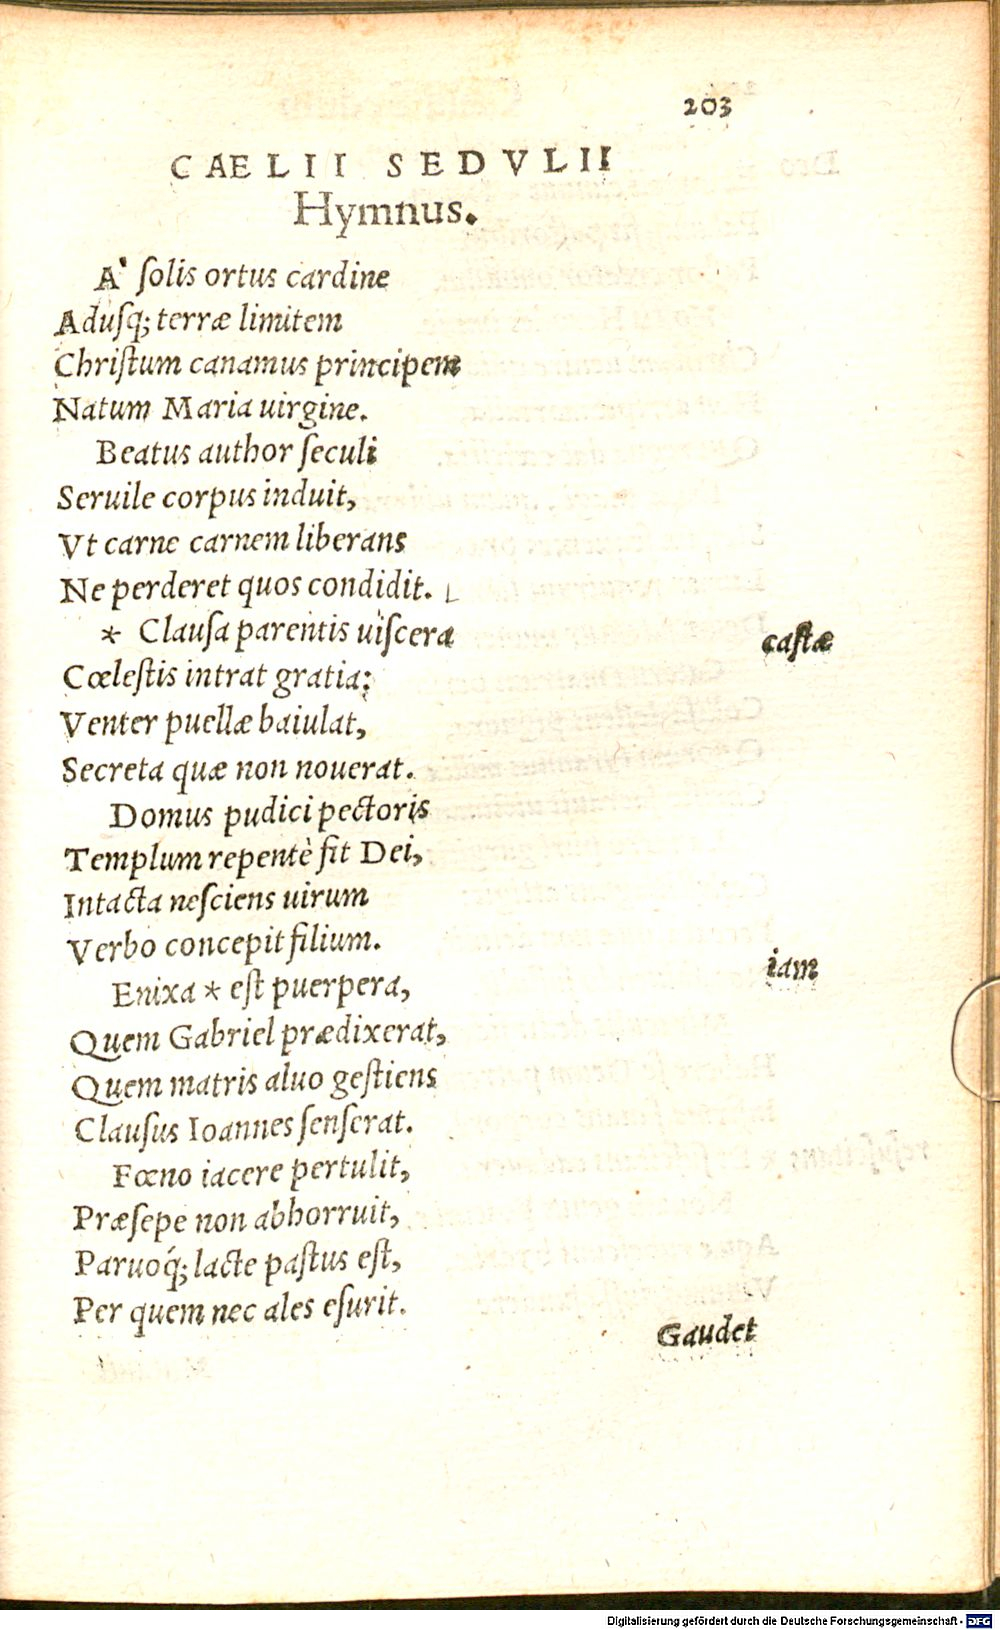 203
CAELII SEDVLII
Hymnus.
A' ſolis ortus cardine
Aduſq; terræ limitem
Chriſtum canamus principem
Natum Maria uirgine.
Beatus author ſeculi
Seruile corpus induit,
Vt carne carnem liberans
Ne perderet quos condidit.
* Clauſa parentis uiſcera castæ
Cœleſtis intrat gratia:
Venter puellæ baiulat,
Secreta quæ non nouerat.
Domus pudici pectoris
Templum repentè fit Dei,
Intacta neſciens uirum
Verbo concepit filium.
Enixa * eſt puerpera, iam
Quem Gabriel prædixerat,
Quem matris aluo geſtiens
Clauſus Ioannes ſenſerat.
Fœno iacere pertulit,
Præſepe non abhorruit,
Paruoq́; lacte paſtus eſt,
Per quem nec ales eſurit.
Gaudet
Digitalisierung gefördert durch die Deutsche Forschungsgemeinschaft - DFG